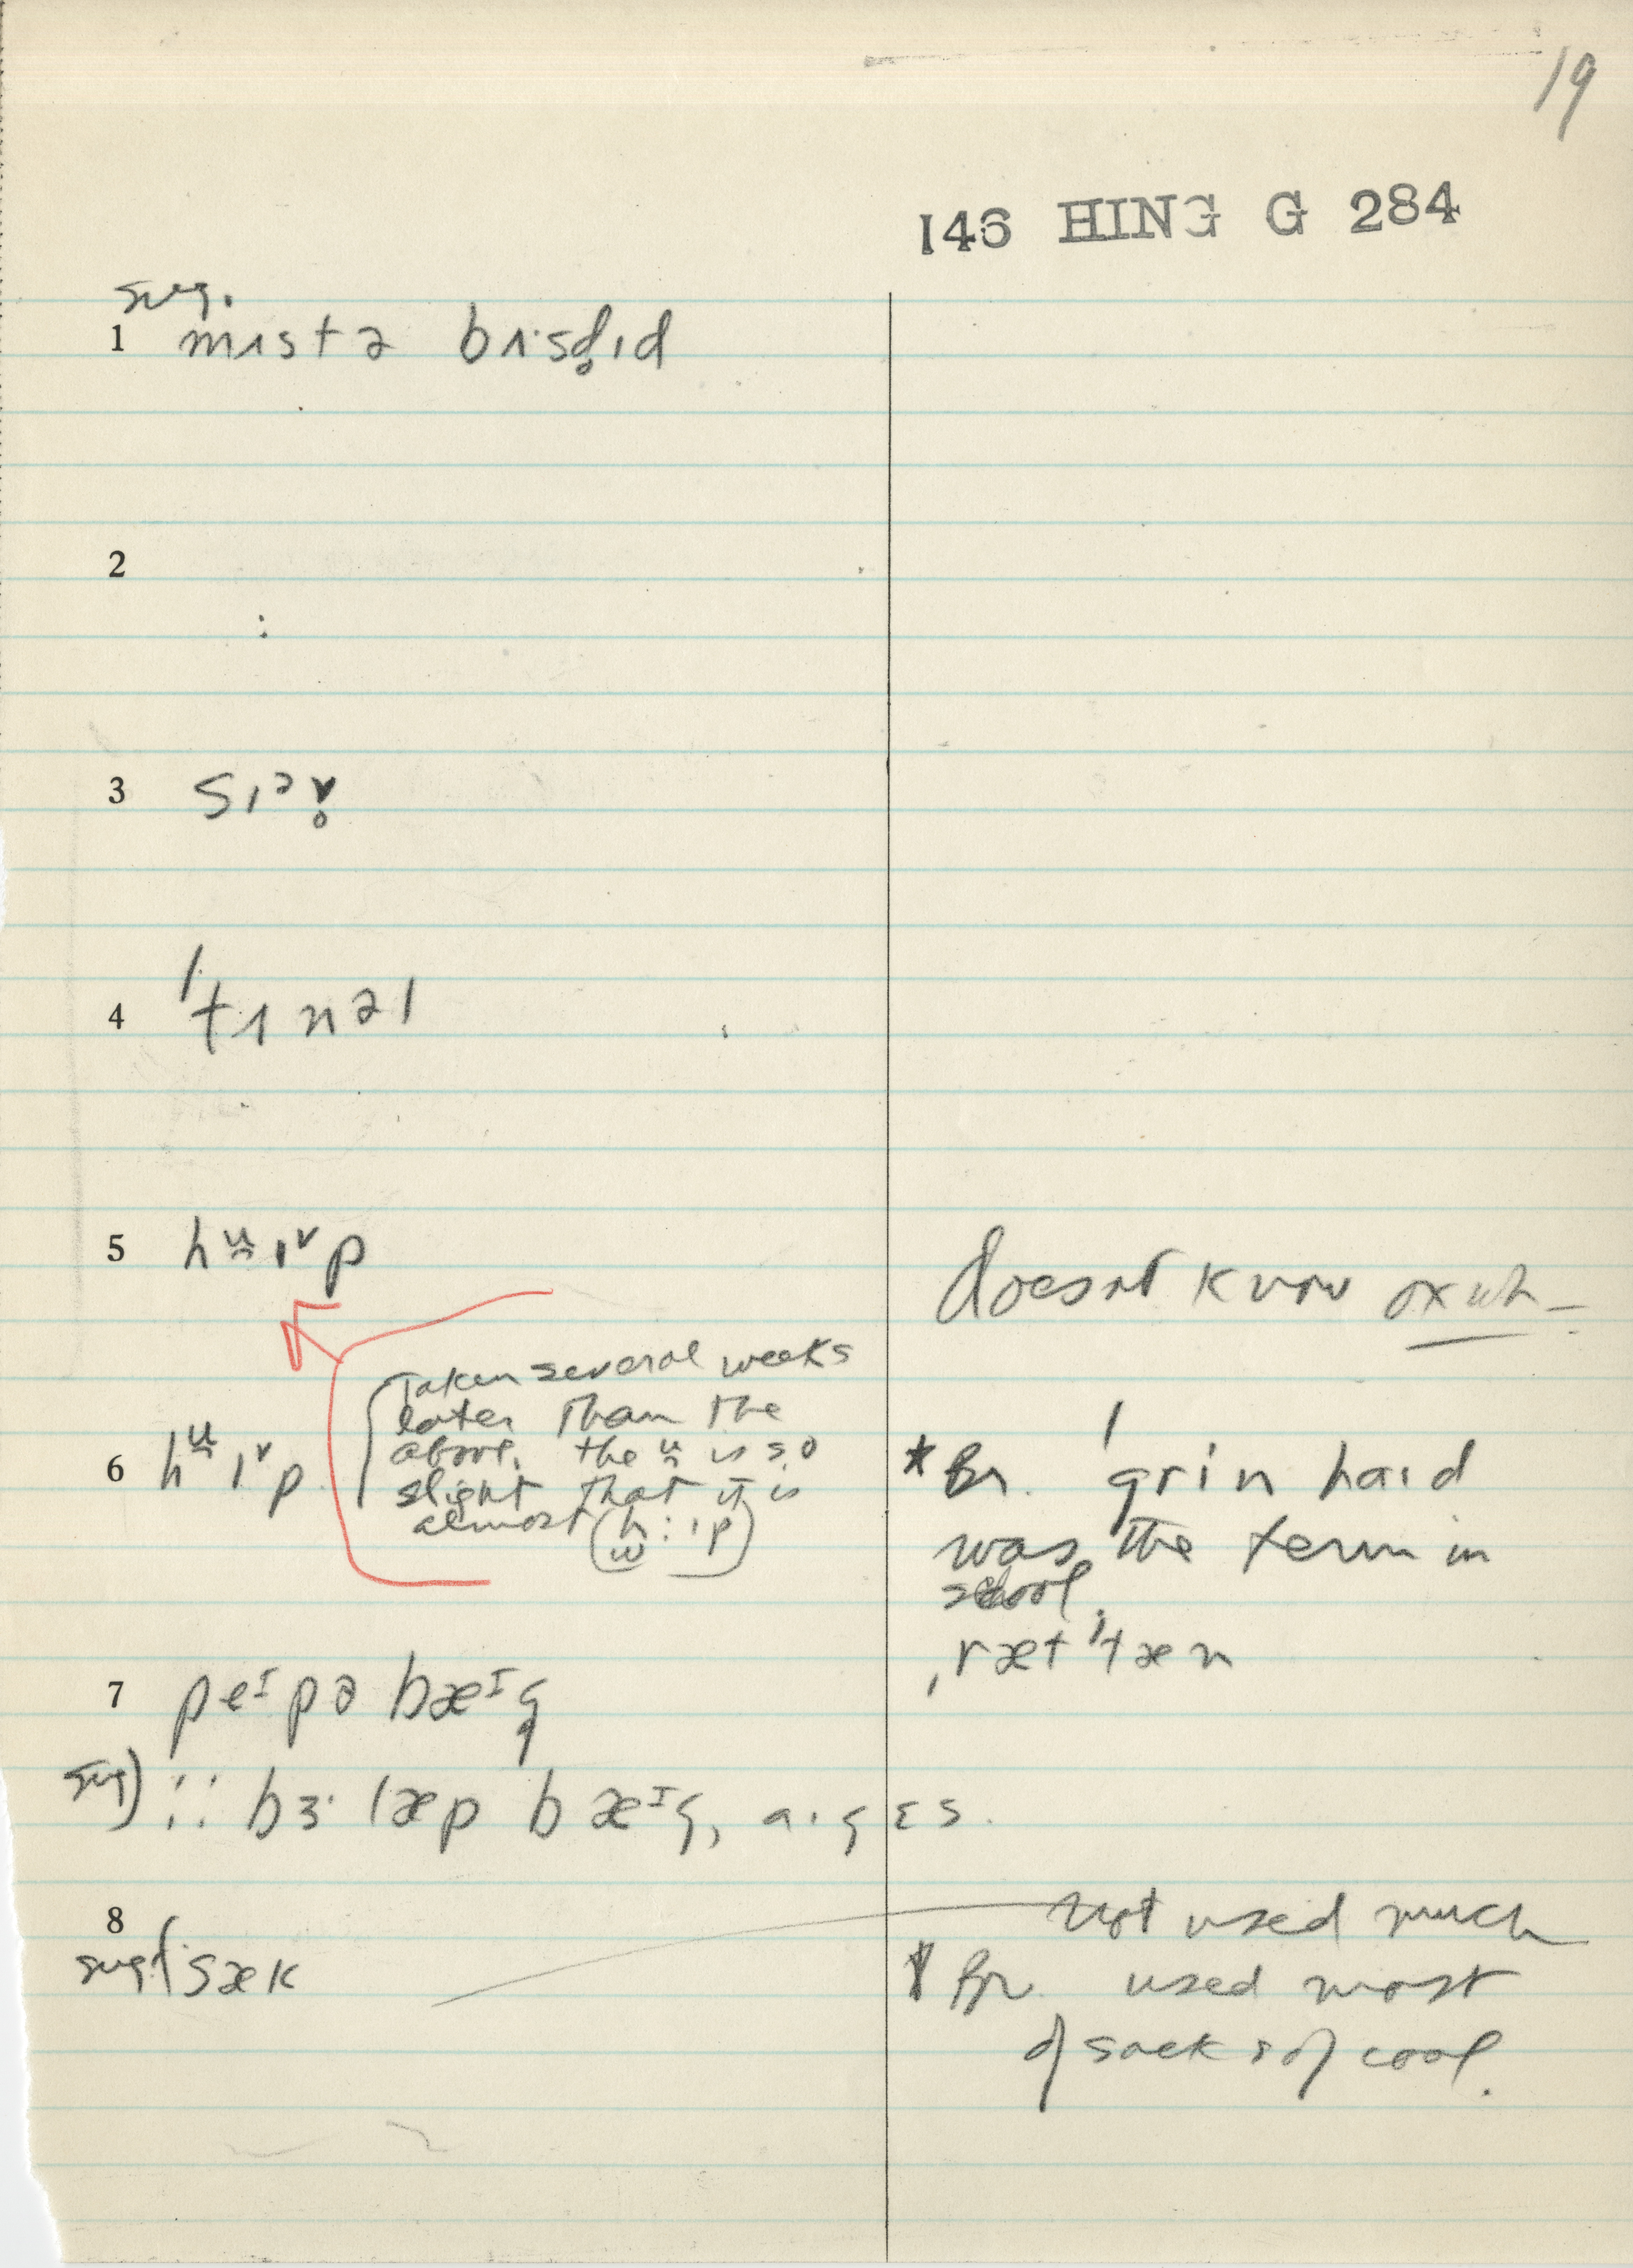 19
146 HING G 284
sug.
1 mɪstə brɪ·sd̥ɪd
2
3 sɪᵊv̥
4 ˈtɪnəl
5 hᵘ̯ɪ˅p
doesn't know
6 hᵘ̯ɪ˅p
Taken several weeks
later than the
above. the ᵘ̯ is so
slight that it is
almost (h:ɪp)
w
* Br. ˈgrin haɪd
was the term in
school.
ˌræt ˈtæn
7 peᴵpə bæᴵg
sug) ∶∶ bɜ·læp bæᴵg, a·gɛs.
8
sug sæk
not used much
Br. used most
of sacks of coal.